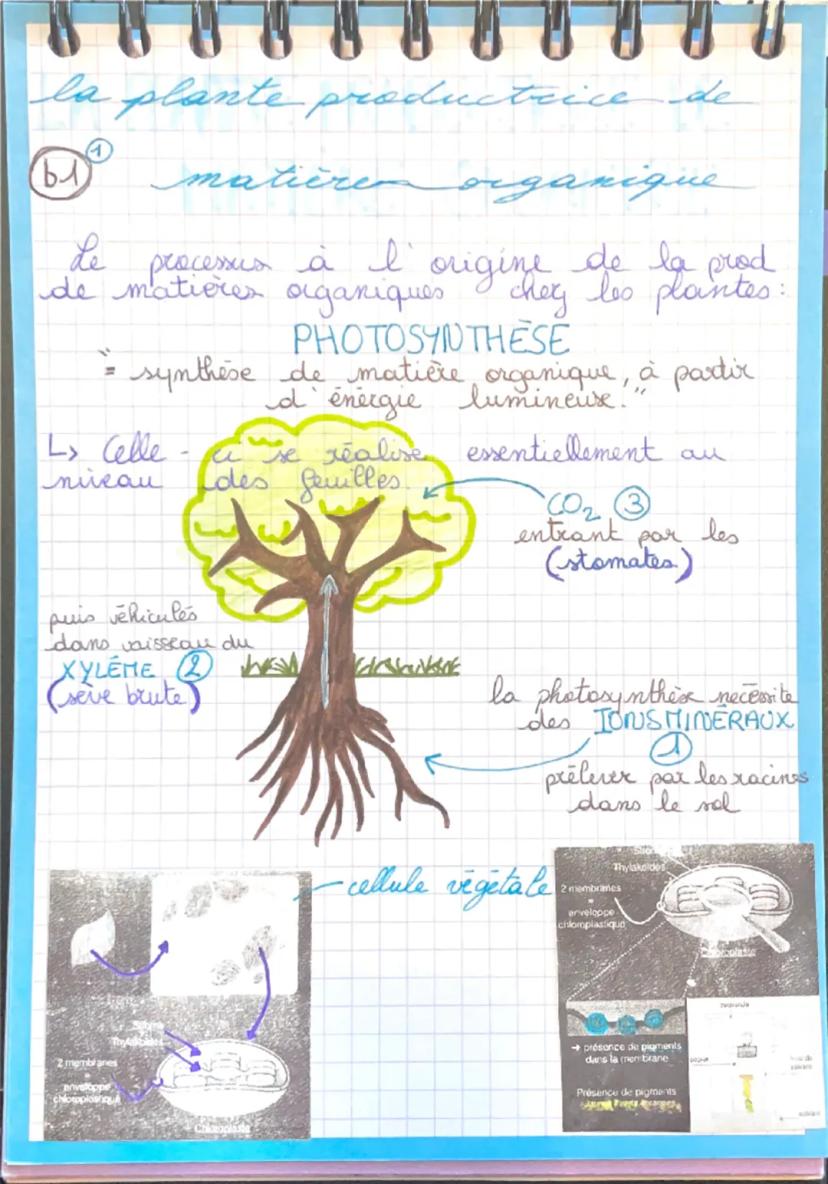 la plante productrice de
b1 1
matière organique
Le processus à l'origine de la prod
de matières organiques chez les plantes:
PHOTOSYNTHÈSE
"= synthèse de matière organique, à partir
d'énergie lumineuse."
↳ Celle-ci se réalise essentiellement au
niveau des feuilles.
CO₂ ③
entrant par les
(stomates)
puis véhiculés
dans vaisseau du
XYLÈME ②
(sève brute)
la photosynthèse necéssite
des IONS MINÉRAUX
①
prélever par les racines
dans le sol
cellule végétale
Thylakoïdes
2 membranes
=
enveloppe
chloroplastique
Chloroplaste
→ présence de pigments
dans la membrane
Présence de pigments
Stroma
Thylakoïdes
2 membranes
=
enveloppe
chloroplastique
Chloroplaste